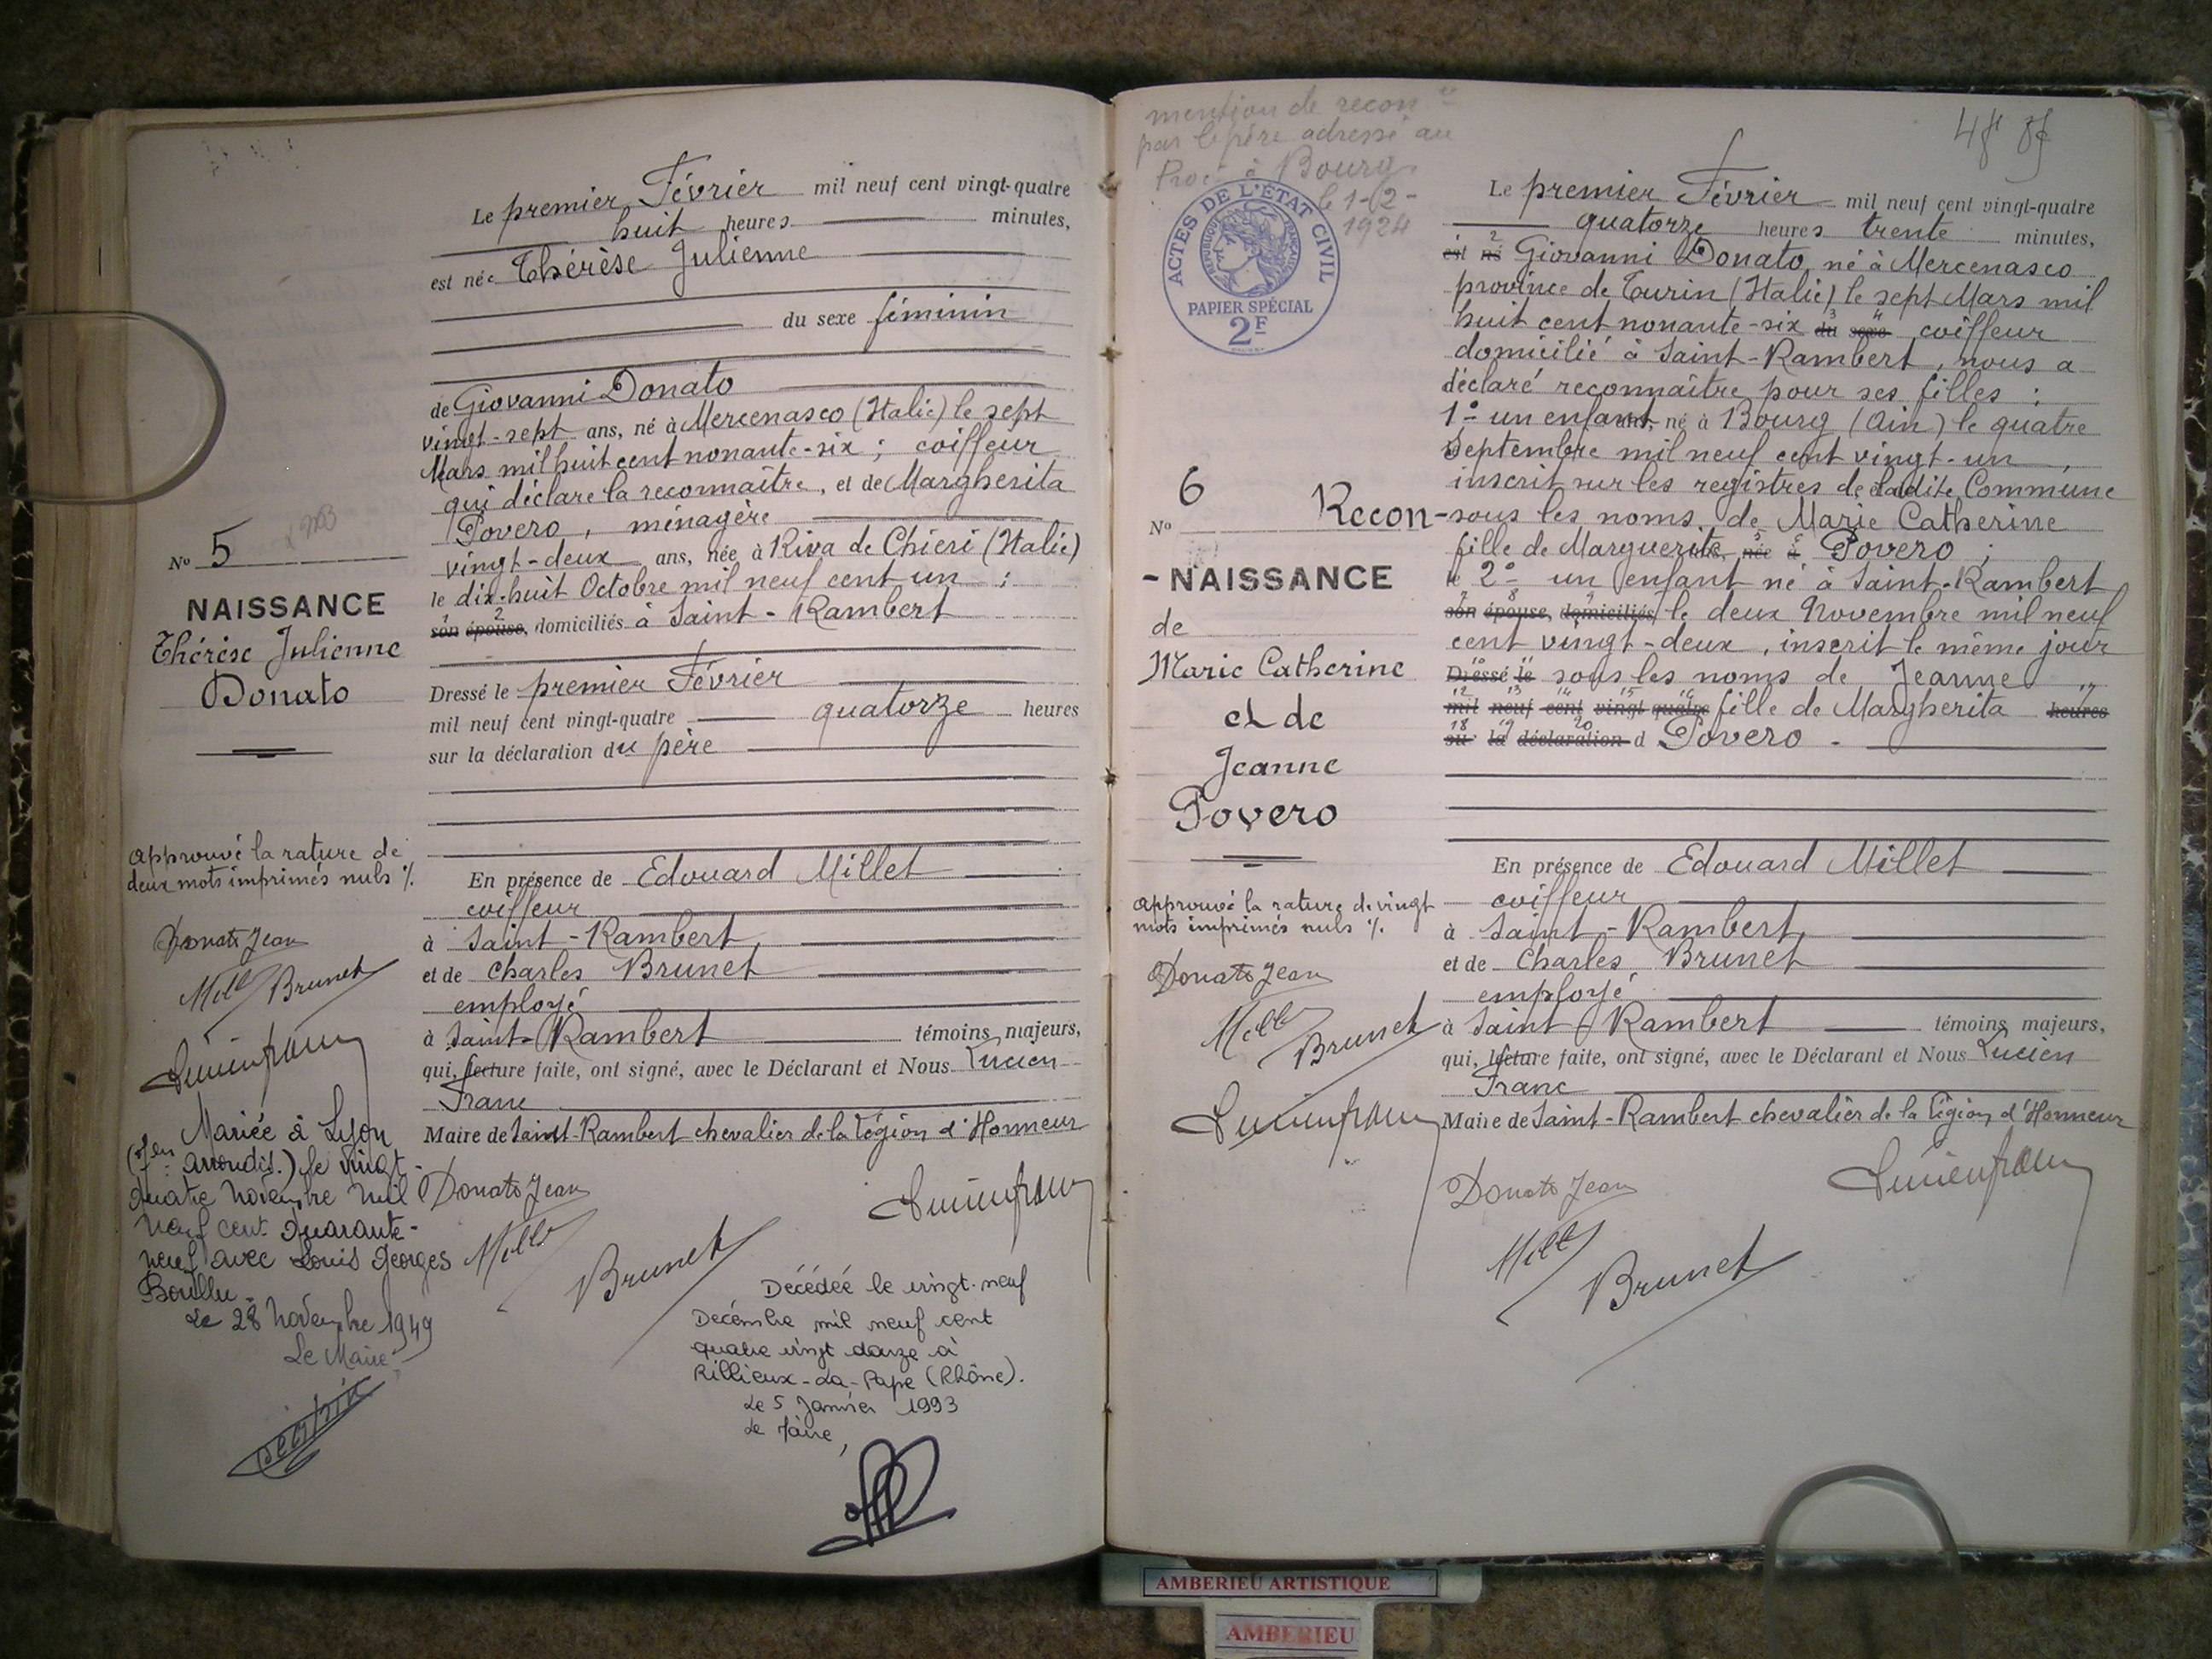 Le premier Février mil neuf cent vingt-quatre
huit heures minutes,
est née Thérèse Julienne
du sexe féminin
de Giovanni Donato
vingt-sept ans, né à Mercenasco (Italie) le sept
Mars mil huit cent nonante-six ; coiffeur
qui déclare la reconnaître, et de Margherita
Povero, ménagère
vingt-deux ans, née à Riva de Chieri (Italie)
le dix-huit Octobre mil neuf cent un ;
1 2
son épouse, domiciliés à Saint-Rambert
Dressé le premier Février
mil neuf cent vingt-quatre quatorze heures
sur la déclaration du père
En présence de Edouard Millet
coiffeur
à Saint-Rambert,
et de Charles Brunet
employé
à Saint-Rambert témoins majeurs,
qui, lecture faite, ont signé, avec le Déclarant et Nous Lucien
Franc
Maire de Saint-Rambert chevalier de la Légion d'Honneur
Donato Jean
Lucien franc
Mill
Brunet
Décédée le vingt-neuf
Décembre mil neuf cent
quatre vingt douze à
Rillieux-La-Pape (Rhône).
Le 5 Janvier 1993
Le Maire,
No 5
NAISSANCE
Thérèse Julienne
Donato
approuvé la rature de
deux mots imprimés nuls %.
Donato Jean
Mill Brunet
Lucien franc
Mariée à Lyon
arrondis.) le vingt-
quatre Novembre mil
neuf cent quarante-
neuf avec Louis Georges
Boullu.
Le 28 Novembre 1949
Le Maire
mention de recon
par le père adressé au
Proc à Bourg
le 1-2-
1924
ACTES DE L'ÉTAT CIVIL
REPUBLIQUE FRANÇAISE
PAPIER SPÉCIAL
2F
No 6
Recon-
-NAISSANCE
de
Marie Catherine
et de
Jeanne
Povero
approuvé la rature de vingt
mots imprimés nuls %.
Donato Jean
Mill
Brunet
Lucien franc
48
Le premier Février mil neuf cent vingt-quatre
quatorze heures trente minutes,
est né Giovanni Donato né à Mercenasco
province de Turin (Italie) le sept Mars mil
huit cent nonante-six du sexe coiffeur
domicilié à Saint-Rambert, nous a
déclaré reconnaître pour ses filles :
1° un enfant né à Bourg (Ain) le quatre
Septembre mil neuf cent vingt-un,
inscrit sur les registres de ladite Commune
sous les noms de Marie Catherine
fille de Marguerite, née à Povero ;
le 2° un enfant né à Saint-Rambert
son épouse, domiciliés le deux Novembre mil neuf
cent vingt-deux, inscrit le même jour
Dressé le sous les noms de Jeanne
mil neuf cent vingt-quatre fille de Margherita heures
sur la déclaration d Povero.
En présence de Edouard Millet
coiffeur
à Saint-Rambert,
et de Charles Brunet
employé
à Saint-Rambert témoins majeurs,
qui, lecture faite, ont signé, avec le Déclarant et Nous Lucien
Franc
Maire de Saint-Rambert chevalier de la Légion d'Honneur
Donato Jean
Lucien franc
Mill
Brunet
AMBERIEU ARTISTIQUE
AMBERIEU